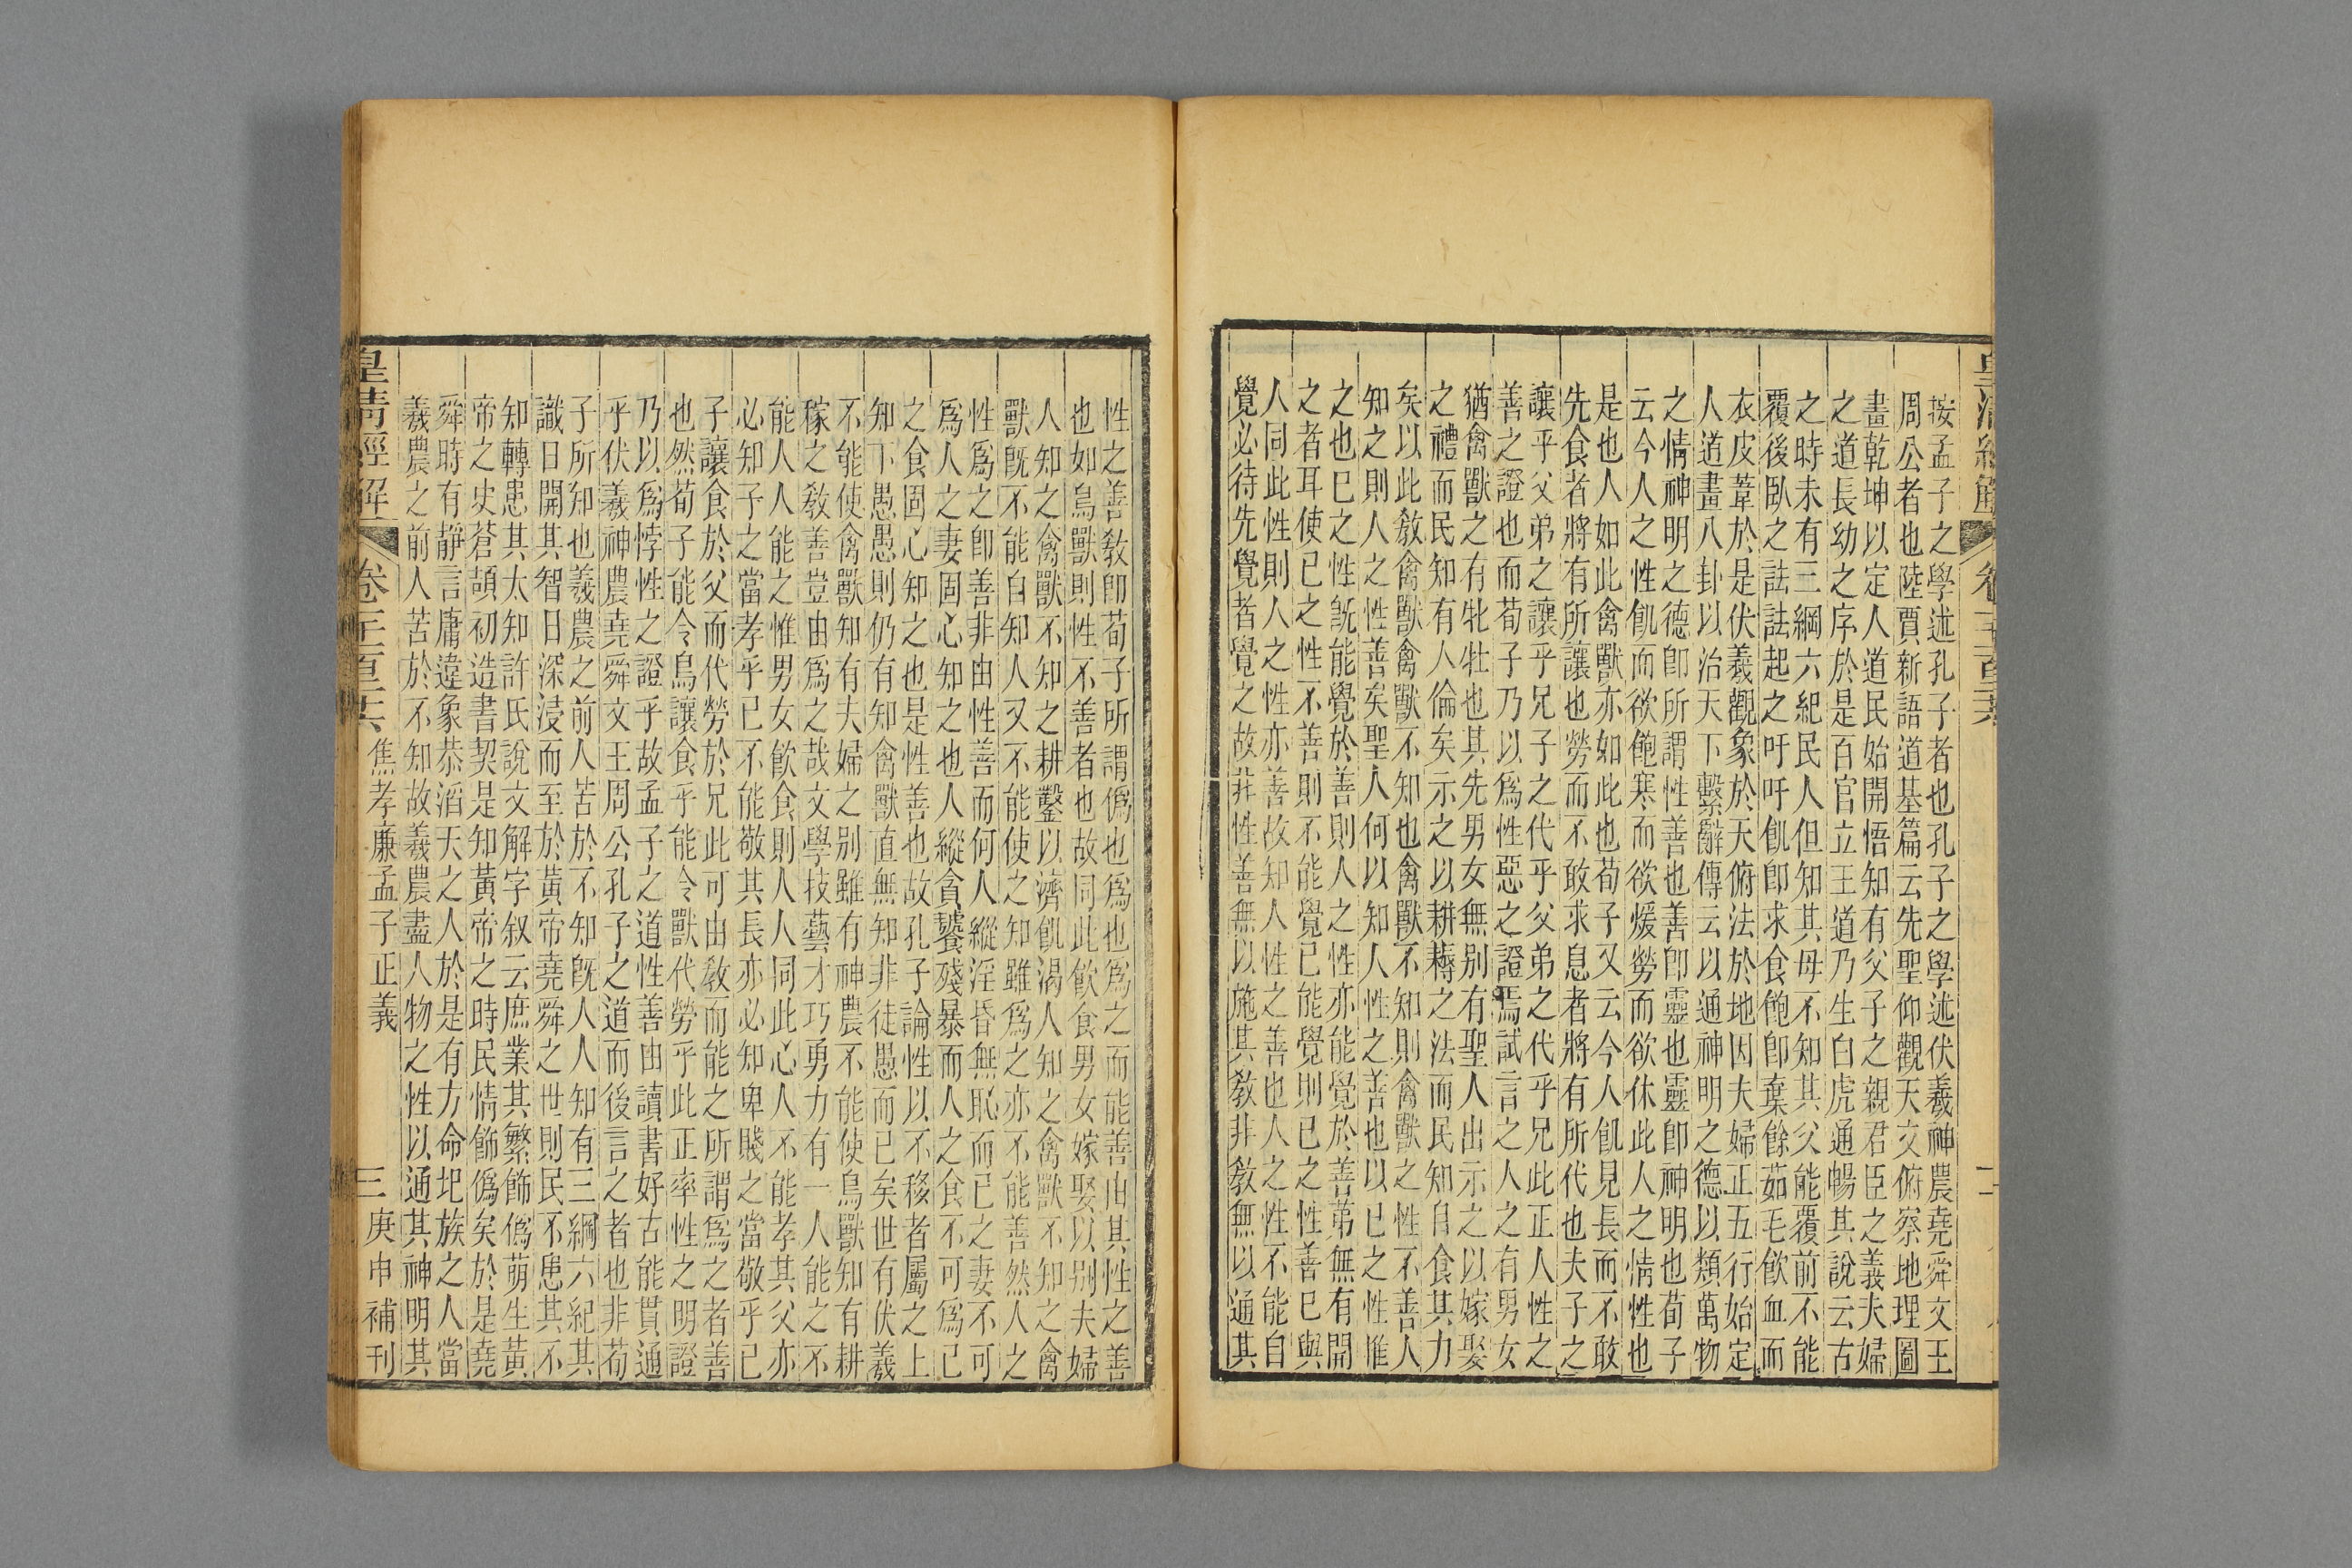 按孟子之學述孔子者也孔子之學述伏羲神農堯舜文王
周公者也陸賈新語道基篇云先聖仰觀天文俯察地理圖
畫乾坤以定人道民始開悟知有父子之親君臣之義夫婦
之道長幼之序於是百官立王道乃生白虎通暢其說云古
之時未有三綱六紀民人但知其母不知其父能覆前不能
覆後臥之詓詓起之吁吁飢卽求食飽卽棄餘茹毛飲血而
衣皮葦於是伏羲觀象於天俯法於地因夫婦正五行始定
人道畫八卦以治天下繫辭傳云以通神明之德以類萬物
之情神明之德卽所謂性善也善卽靈也靈卽神明也荀子
云今人之性飢而欲飽寒而欲煖勞而欲休此人之情性也
是也人如此禽獸亦如此也荀子又云今人飢見長而不敢
先食者將有所讓也勞而不敢求息者將有所代也夫子之
讓乎父弟之讓乎兄子之代乎父弟之代乎兄此正人性之
善之證也而荀子乃以爲性惡之證焉試言之人之有男女
猶禽獸之有牝牡也其先男女無别有聖人出示之以嫁娶
之禮而民知有人倫矣示之以耕耨之法而民知自食其力
矣以此敎禽獸禽獸不知也禽獸不知則禽獸之性不善人
知之則人之性善矣聖人何以知人性之善也以已之性惟
之也已之性旣能覺於善則人之性亦能覺於善苐無有開
之者耳使已之性不善則不能覺已能覺則已之性善已與
人同此性則人之性亦善故知人性之善也人之性不能自
覺必待先覺者覺之故非性善無以施其敎非敎無以通其
性之善敎卽荀子所謂僞也爲也爲之而能善由其性之善
也如鳥獸則性不善者也故同此飮食男女嫁娶以别夫婦
人知之禽獸不知之耕鑿以濟飢渴人知之禽獸不知之禽
獸旣不能自知人又不能使之知雖爲之亦不能善然人之
性爲之卽善非由性善而何人縱淫昏無恥而已之妻不可
爲人之妻固心知之也人縱貪饕殘暴而人之食不可爲己
之食固心知之也是性善也故孔子論性以不移者屬之上
知下愚愚則仍有知禽獸直無知非徒愚而已矣世有伏羲
不能使禽獸知有夫婦之别雖有神農不能使鳥獸知有耕
稼之敎善豈由爲之哉文學技藝才巧勇力有一人能之不
能人人能之惟男女飮食則人人同此心人不能孝其父亦
必知子之當孝乎已不能敬其長亦必知卑賤之當敬乎已
子讓食於父而代勞於兄此可由敎而能之所謂爲之者善
也然荀子能令鳥讓食乎能令獸代勞乎此正率性之明證
乃以爲悖性之證乎故孟子之道性善由讀書好古能貫通
乎伏羲神農堯舜文王周公孔子之道而後言之者也非荀
子所知也羲農之前人苦於不知旣人人知有三綱六紀其
識日開其智日深浸而至於黃帝堯舜之世則民不患其不
知轉患其太知許氏說文解字叙云庶業其繁飾僞萌生黃
帝之史蒼頡初造書契是知黃帝之時民情飾僞矣於是堯
舜時有靜言庸違象恭滔天之人於是有方命圯族之人當
羲農之前人苦於不知故羲農盡人物之性以通其神明其
皇淸經解
焦孝廉孟子正義
三
庚申補刊